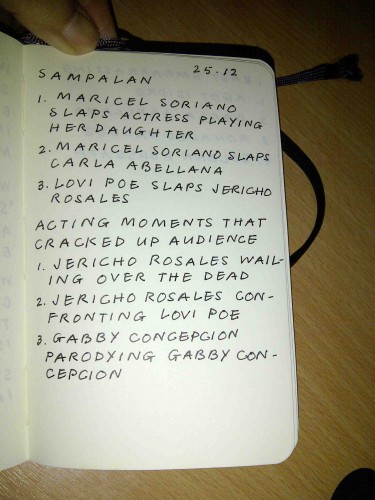 25.12
SAMPALAN
1. MARICEL SORIANO
SLAPS ACTRESS PLAYING
HER DAUGHTER
2. MARICEL SORIANO SLAPS
CARLA ABELLANA
3. LOVI POE SLAPS JERICHO
ROSALES
ACTING MOMENTS THAT
CRACKED UP AUDIENCE
1. JERICHO ROSALES WAIL-
ING OVER THE DEAD
2. JERICHO ROSALES CON-
FRONTING LOVI POE
3. GABBY CONCEPCION
PARODYING GABBY CON-
CEPCION